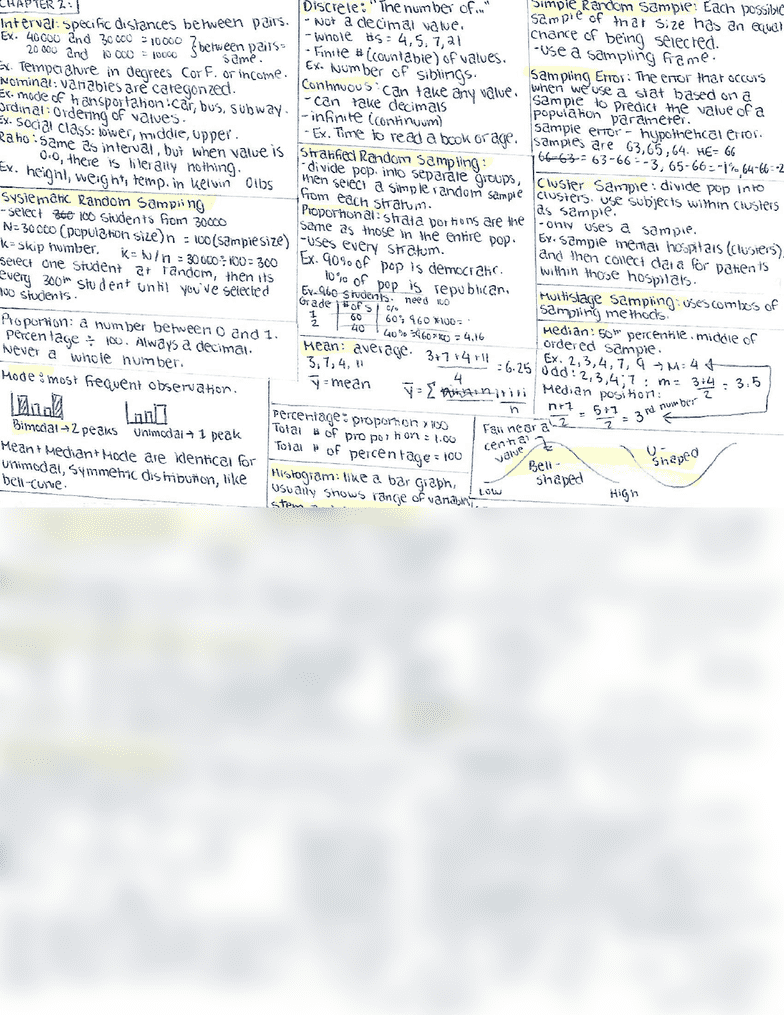 CHAPTER 2:
Interval: specific distances between pairs.
Ex. 40000 and 30000 = 10000 } between pairs =
20000 and 10000 = 10000 same.
Ex. Temperature in degrees C or F. or income.
Nominal: variables are categorized.
Ex. mode of transportation: car, bus, subway.
Ordinal: ordering of values.
Ex. Social Class: lower, middle, upper.
Ratio: same as interval, but when value is
0.0, there is literally nothing.
Ex. height, weight, temp. in Kelvin 0lbs
Systematic Random Sampling
-select 100 students from 30000
N=30000 (population size) n = 100 (sample size)
k=skip number. K=N/n = 30000÷100=300
select one student at random, then its
every 300th student until you've selected
100 students.
Proportion: a number between 0 and 1.
Percentage ÷ 100. Always a decimal.
Never a whole number.
Mode: most frequent observation.
Bimodal→2 peaks Unimodal→1 peak
Mean+Median+Mode are identical for
unimodal, symmetric distribution, like
bell-curve.
Discrete: "The number of..."
- Not a decimal value.
- Whole #s = 4, 5, 7, 21
- Finite # (countable) of values.
Ex. Number of siblings.
Continuous: can take any value.
- can take decimals
- infinite (continuum)
- Ex. Time to read a book or age.
Stratified Random Sampling:
- divide pop. into separate groups,
then select a simple random sample
from each stratum.
Proportional: strata portions are the
same as those in the entire pop.
- uses every stratum.
Ex. 90% of pop is democratic.
10% of pop is republican.
Ex. 960 students. need 100
Grade | # of s | %
1 | 60 | 60÷960×100=
2 | 40 | 40÷960×100=4.16
Mean: average.
3, 7, 4, 11
3+7+4+11 = 6.25
4
ȳ=mean ȳ=Σ
n
Percentage: proportion x 100
Total # of proportion = 1.00
Total # of percentage = 100
Histogram: like a bar graph,
usually shows range of variability.
Simple Random Sample: Each possible
sample of that size has an equal
chance of being selected.
-Use a sampling frame.
Sampling Error: The error that occurs
when we use a stat based on a
sample to predict the value of a
population parameter.
sample error - hypothetical error.
samples are 63, 65, 64. HE= 66
66-63= 63-66=-3, 65-66=-1, 64-66=-2
Cluster Sample: divide pop into
clusters. use subjects within clusters
as sample.
-only uses a sample.
Ex. sample mental hospitals (clusters)
and then collect data for patients
within those hospitals.
Multistage Sampling: uses combos of
sampling methods.
Median: 50th percentile. middle of
ordered sample.
Ex. 2, 3, 4, 7, 9 → M=4
Odd: 2, 3, 4, 7 : m= 3+4 = 3.5
2
Median position:
n+1 = 5+1 = 3rd number
2 2
Fall near a
central
value
Bell-
shaped
U-
shaped
Low High